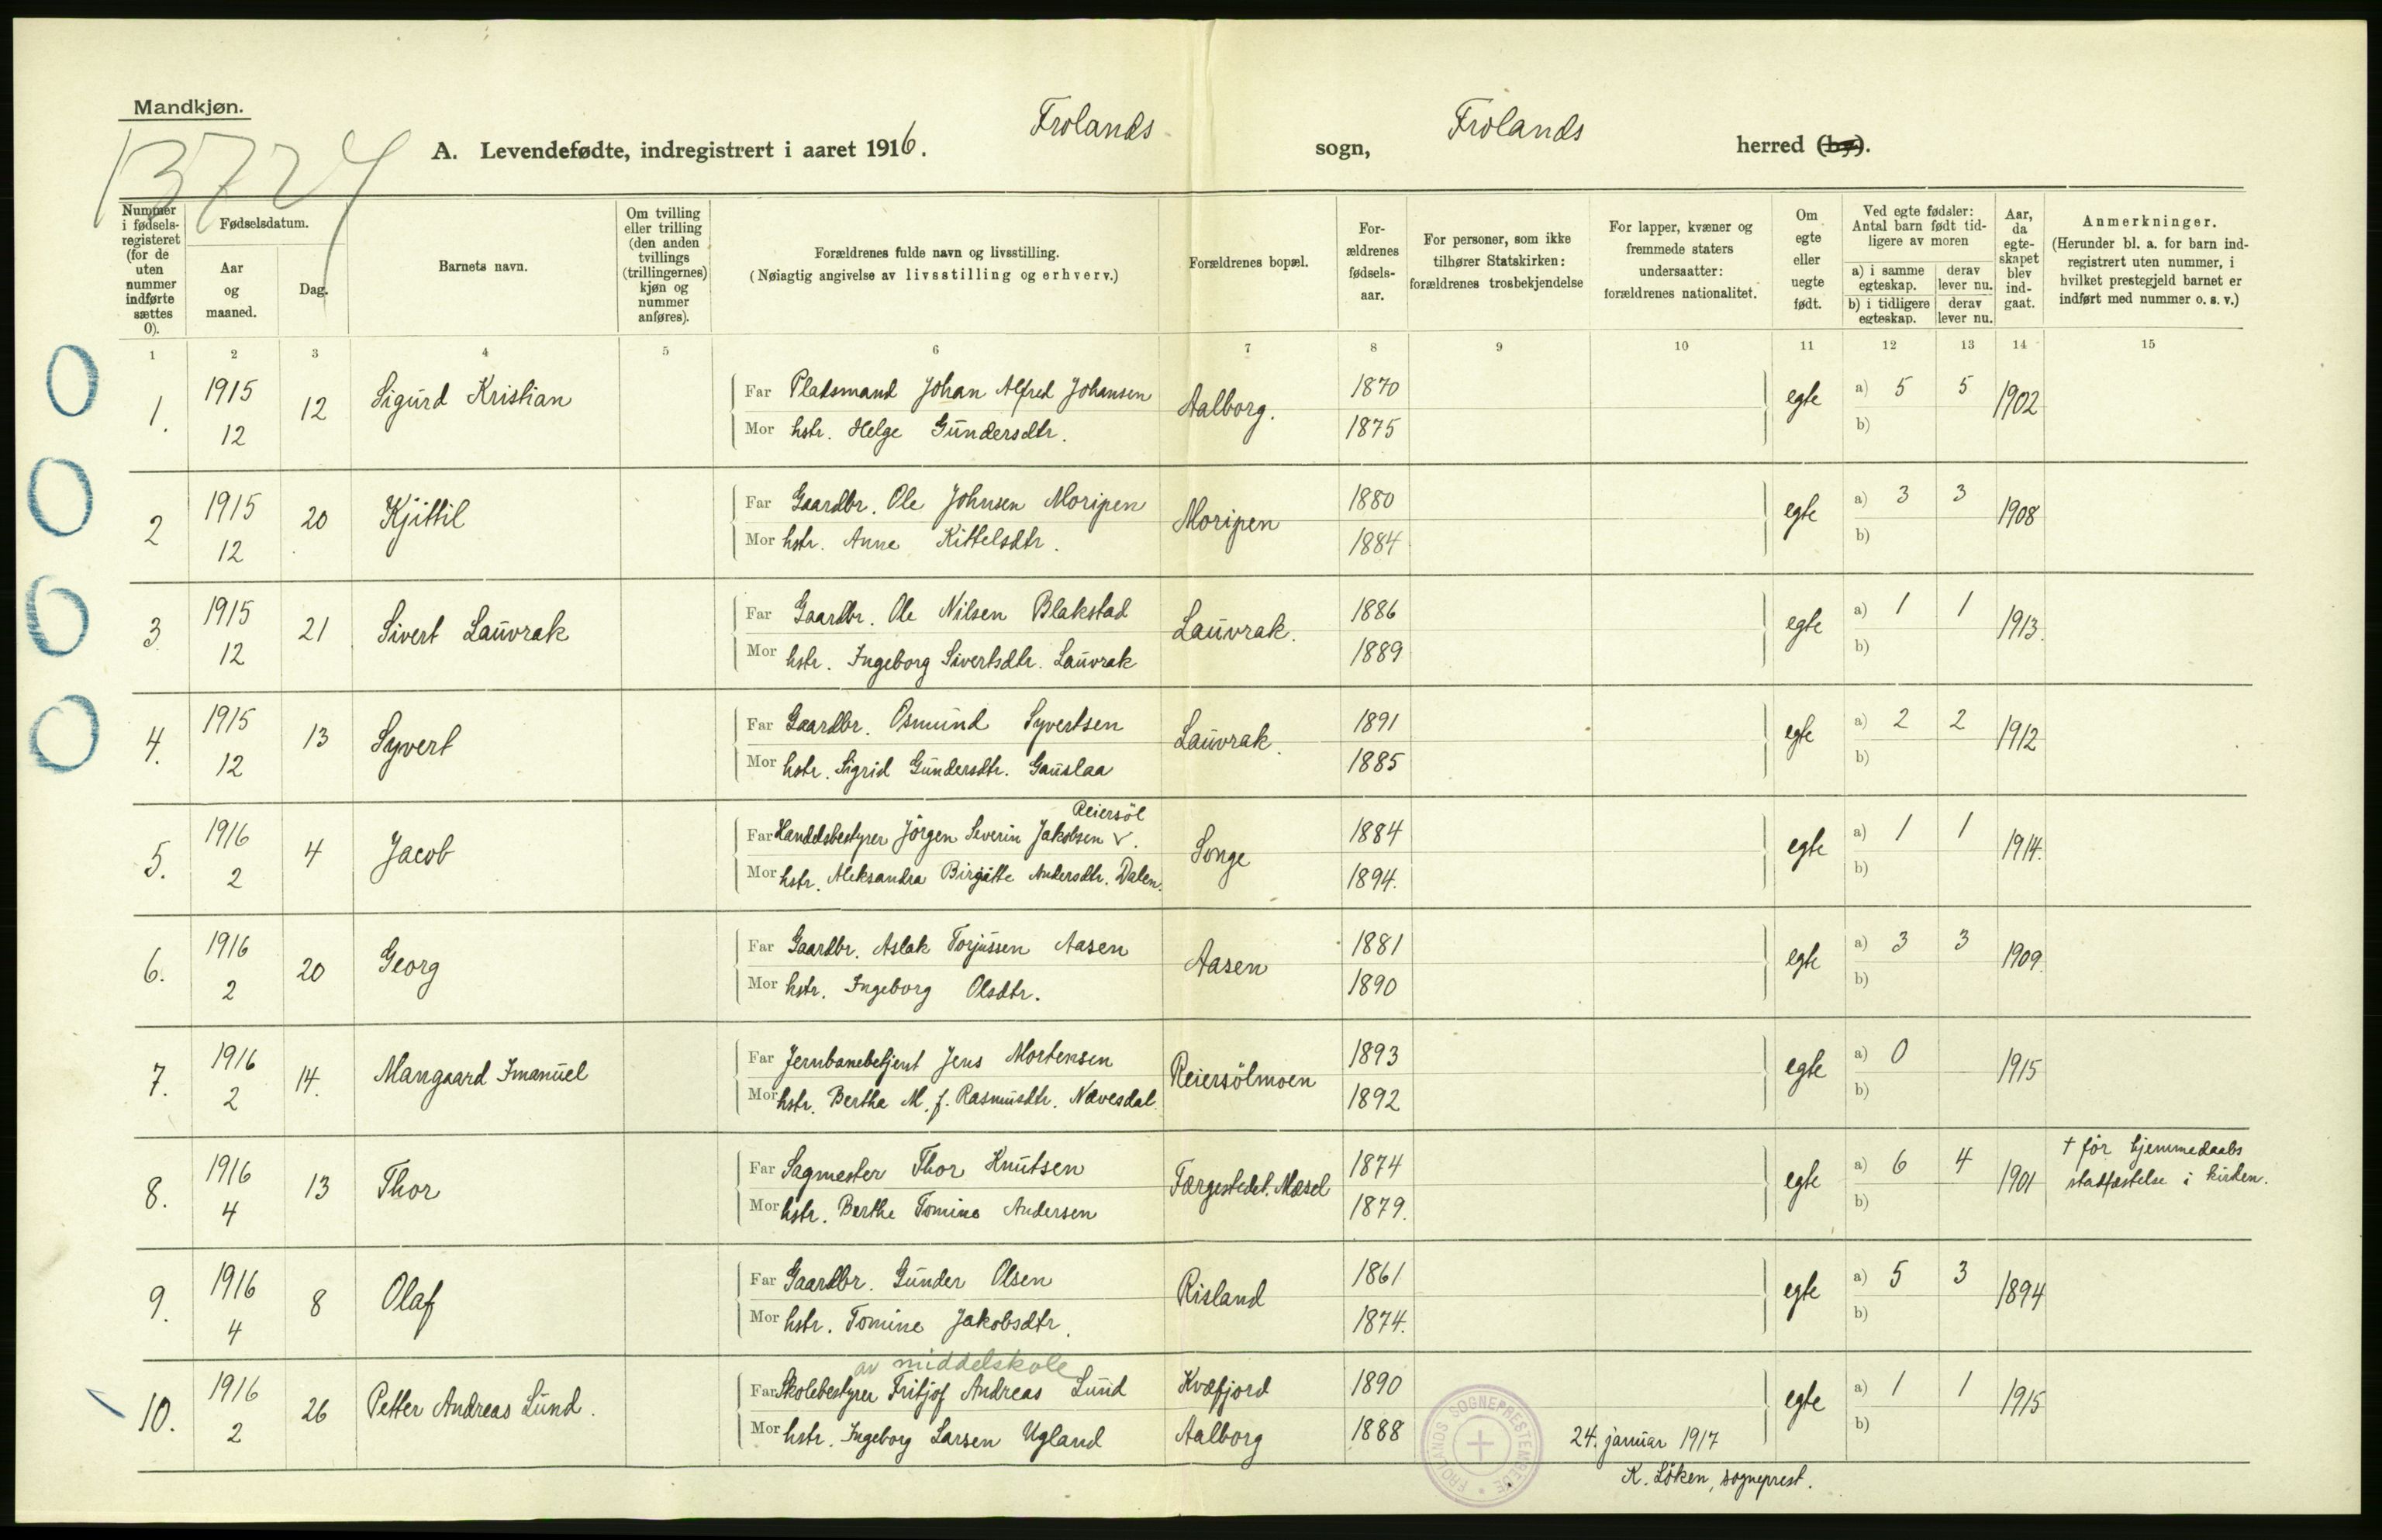 Mandkjøn.
13724
A. Levendefødte, indregistrert i aaret 1916. Frolands sogn, Frolands herred (by).
Nummer i fødsels-registeret (for de uten nummer indførte sættes 0).
Fødselsdatum.
Aar og maaned.
Dag.
Barnets navn.
Om tvilling eller trilling (den anden tvillings (trillingernes) kjøn og nummer anføres).
Forældrenes fulde navn og livsstilling.
(Nøiagtig angivelse av livsstilling og erhverv.)
Forældrenes bopæl.
For-ældrenes fødsels-aar.
For personer, som ikke tilhører Statskirken: forældrenes trosbekjendelse
For lapper, kvæner og fremmede staters undersaatter: forældrenes nationalitet.
Om egte eller uegte født.
Ved egte fødsler: Antal barn født tid-ligere av moren
a) i samme egteskap. derav lever nu.
b) i tidligere egteskap. derav lever nu.
Aar, da egte-skapet blev ind-gaat.
Anmerkninger.
(Herunder bl. a. for barn ind-registrert uten nummer, i hvilket prestegjeld barnet er indført med nummer o. s. v.)
1 2 3 4 5 6 7 8 9 10 11 12 13 14 15
0 1. 1915 12 12 Sigurd Kristian Far Pladsmand Johan Alfred Johansen Aalborg. 1870 egte a) 5 5 1902
Mor hstr. Helge Gundersdtr. 1875 b)
0 2 1915 12 20 Kjittil Far Gaardbr. Ole Johnsen Moripen Moripen 1880 egte a) 3 3 1908
Mor hstr. Anne Kittelsdtr. 1884 b)
0 3 1915 12 21 Sivert Lauvrak Far Gaardbr. Ole Nilsen Blakstad Lauvrak. 1886 egte a) 1 1 1913.
Mor hstr. Ingeborg Sivertsdtr. Lauvrak 1889 b)
0 4. 1915 12 13 Syvert Far Gaardbr. Osmund Syvertsen Lauvrak. 1891 egte a) 2 2 1912
Mor hstr. Sigrid Gundersdtr. Gauslaa 1885 b)
5. 1916 2 4 Jacob Far Handelsbestyrer Jörgen Severin Jakobsen Reiersöl. Songe 1884 egte a) 1 1 1914.
Mor hstr. Aleksandra Birgitte Andersdtr. Dalen. 1894. b)
6. 1916 2 20 Georg Far Gaardbr. Aslak Torjussen Aasen Aasen 1881 egte a) 3 3 1909.
Mor hstr. Ingeborg Olsdtr. 1890 b)
7. 1916 2 14. Mangaard Imanuel Far Jernbanebetjent Jens Mortensen Reiersölmoen 1893 egte a) 0 1915
Mor hstr. Bertha M. f. Rasmusdtr. Nævesdal 1892 b)
8. 1916 4 13 Thor Far Sagmester Thor Knutsen Færgestedet. Mæsel 1874 egte a) 6 4 1901 † för hjemmedaabs
Mor hstr. Berthe Tomine Andersen 1879. b) stadfæstelse i kirken.
9. 1916 4 8 Olaf Far Gaardbr. Gunder Olsen Risland 1861 egte a) 5 3 1894
Mor hstr. Tomine Jakobsdtr. 1874. b)
av middelskole
10. 1916 2 26 Petter Andreas Lund. Far Skolebestyrer Fritjof Andreas Lund Kvæfjord 1890 egte a) 1 1 1915
Mor hstr. Ingeborg Larsen Ugland Aalborg 1888 b)
FROLANDS SOGNEPRESTEMBEDE
24. januar 1917
K. Löken, sogneprest.